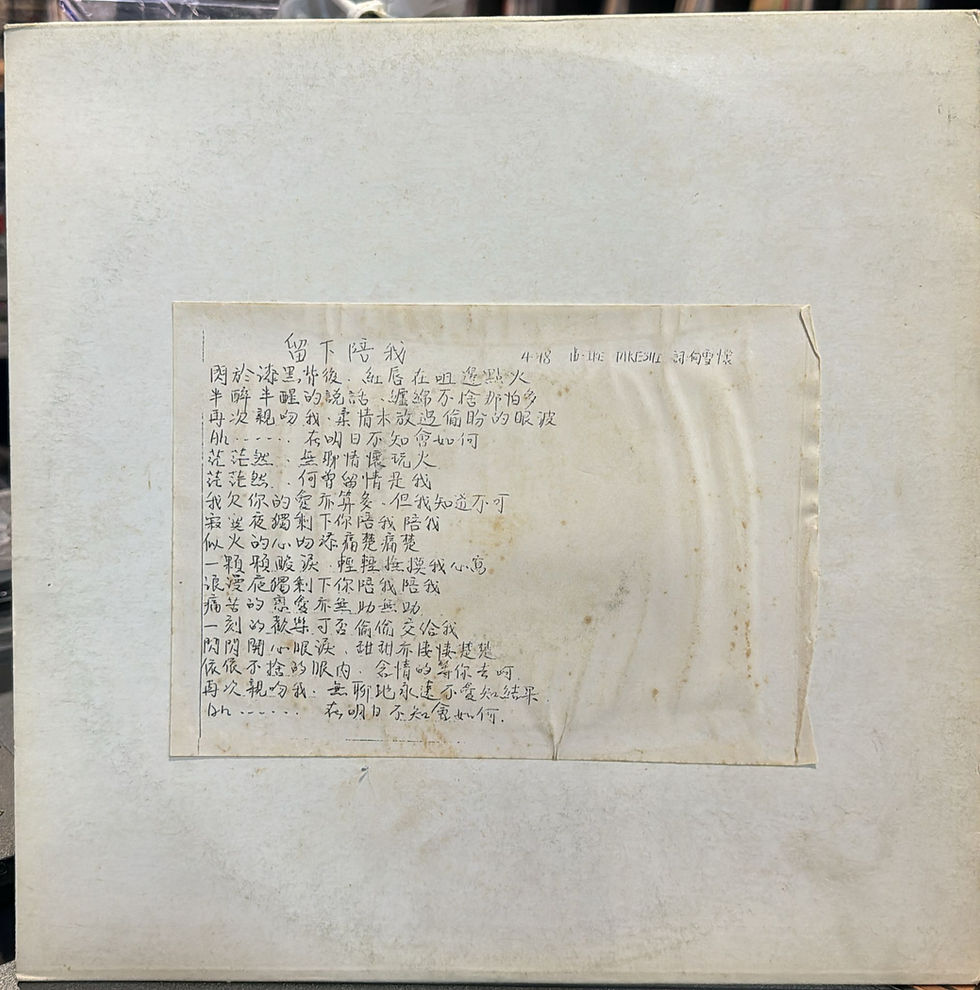 留下陪我 4:48 曲: IKE TAKESHI 詞:向雪懷
閃於漆黑背後、紅唇在咀邊點火
半醉半醒的說話、纏綿不捨那怕多
再次親吻我、柔情未放過偷盼的眼波
Ah...... 在明日不知會如何
茫茫然、無聊情懷玩火
茫茫然、何曾留情是我
我欠你的愛亦算多、但我知道不可
寂寞夜獨剩下你陪我陪我
似火的心吻添痛楚痛楚
一顆顆酸淚、輕輕撫摸我心窩
浪漫夜獨剩下你陪我陪我
痛苦的戀愛亦無助無助
一刻的歡樂可否偷偷交給我
閃閃開心眼淚、甜甜亦悽悽楚楚
依依不捨的眼內、含情的等你去呵、
再次親吻我、無聊地永遠不愛知結果、
Ah...... 在明日不知會如何.